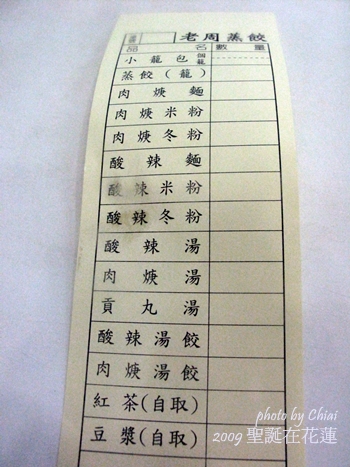 老周蒸餃
品名 數量
小籠包 個籠
蒸餃(籠)
肉焿麵
肉焿米粉
肉焿冬粉
酸辣麵
酸辣米粉
酸辣冬粉
酸辣湯
肉焿湯
貢丸湯
酸辣湯餃
肉焿湯餃
紅茶(自取)
豆漿(自取)
photo by Chiai
2009 聖誕在花蓮